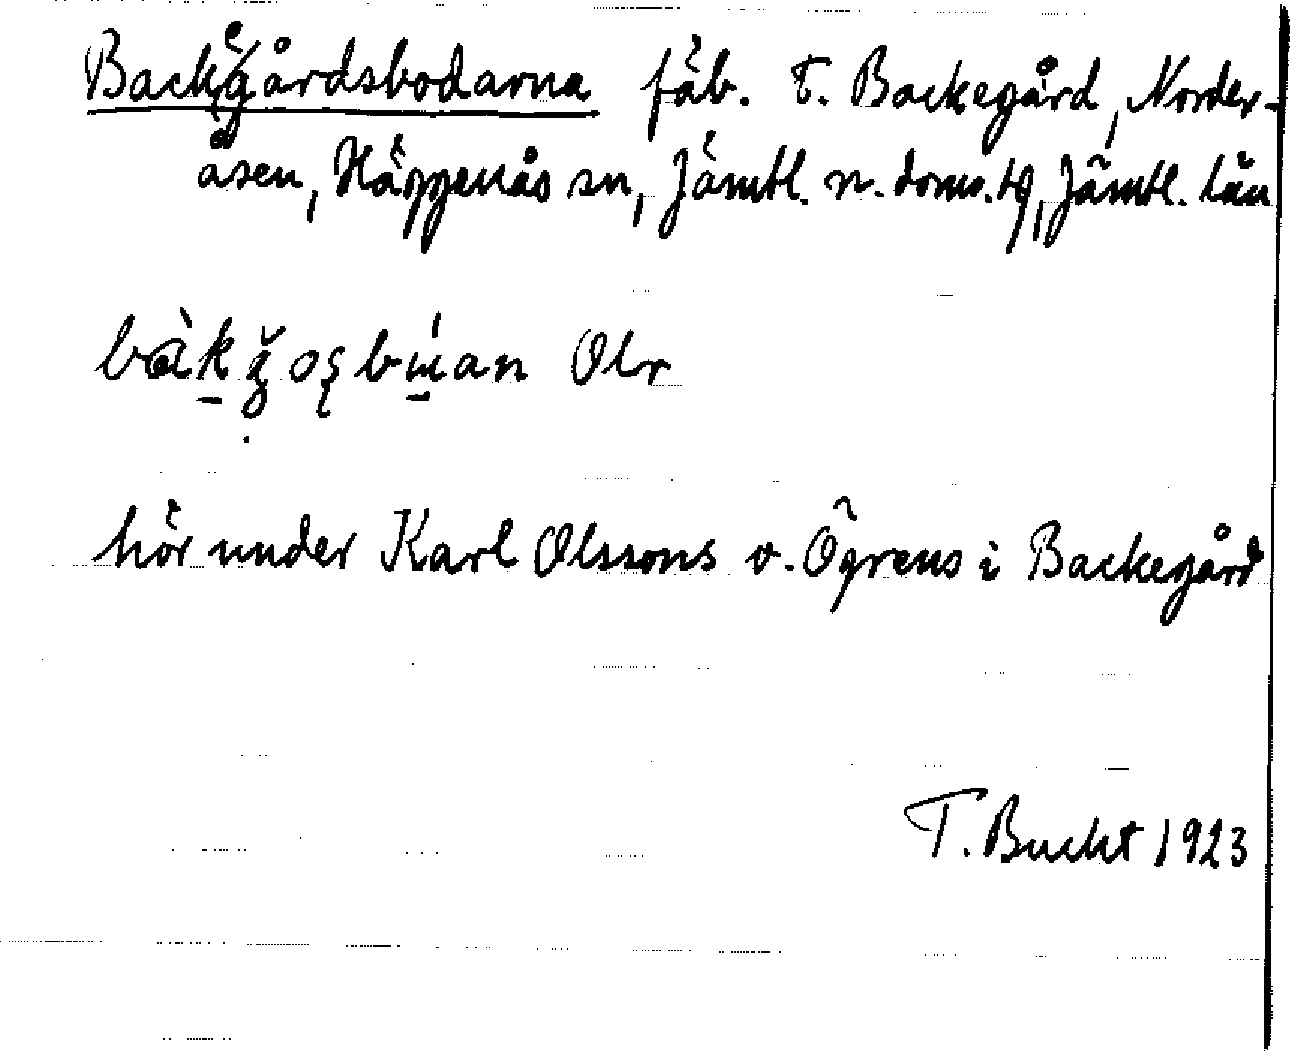 Backegårdsbodarna fäb. t. Backegård, Norder-
åsen, Häggenås sn, Jämtl. n. doms. tg, Jämtl. län
Olr
hör under Karl Olssons o. Ögrens i Backegård
T. Bucht 1923